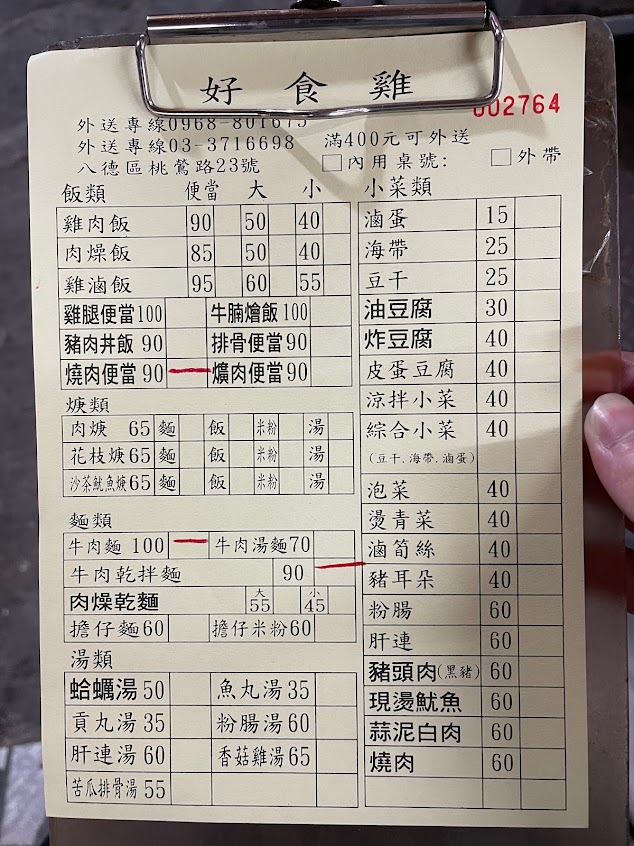 好食雞
002764
外送專線0968-801675
外送專線03-3716698 滿400元可外送
八德區桃鶯路23號 內用桌號: 外帶
飯類 便當 大 小
雞肉飯 90 50 40
肉燥飯 85 50 40
雞滷飯 95 60 55
雞腿便當100 牛腩燴飯100
豬肉丼飯 90 排骨便當90
燒肉便當90 爌肉便當90
焿類
肉焿 65 麵 飯 米粉 湯
花枝焿65 麵 飯 米粉 湯
沙茶魷魚焿65 麵 飯 米粉 湯
麵類
牛肉麵 100 牛肉湯麵70
牛肉乾拌麵 90
肉燥乾麵 大55 小45
擔仔麵60 擔仔米粉60
湯類
蛤蠣湯 50 魚丸湯 35
貢丸湯 35 粉腸湯 60
肝連湯 60 香菇雞湯 65
苦瓜排骨湯 55
小菜類
滷蛋 15
海帶 25
豆干 25
油豆腐 30
炸豆腐 40
皮蛋豆腐 40
涼拌小菜 40
綜合小菜 40
(豆干、海帶、滷蛋)
泡菜 40
燙青菜 40
滷筍絲 40
豬耳朵 40
粉腸 60
肝連 60
豬頭肉(黑豬) 60
現燙魷魚 60
蒜泥白肉 60
燒肉 60